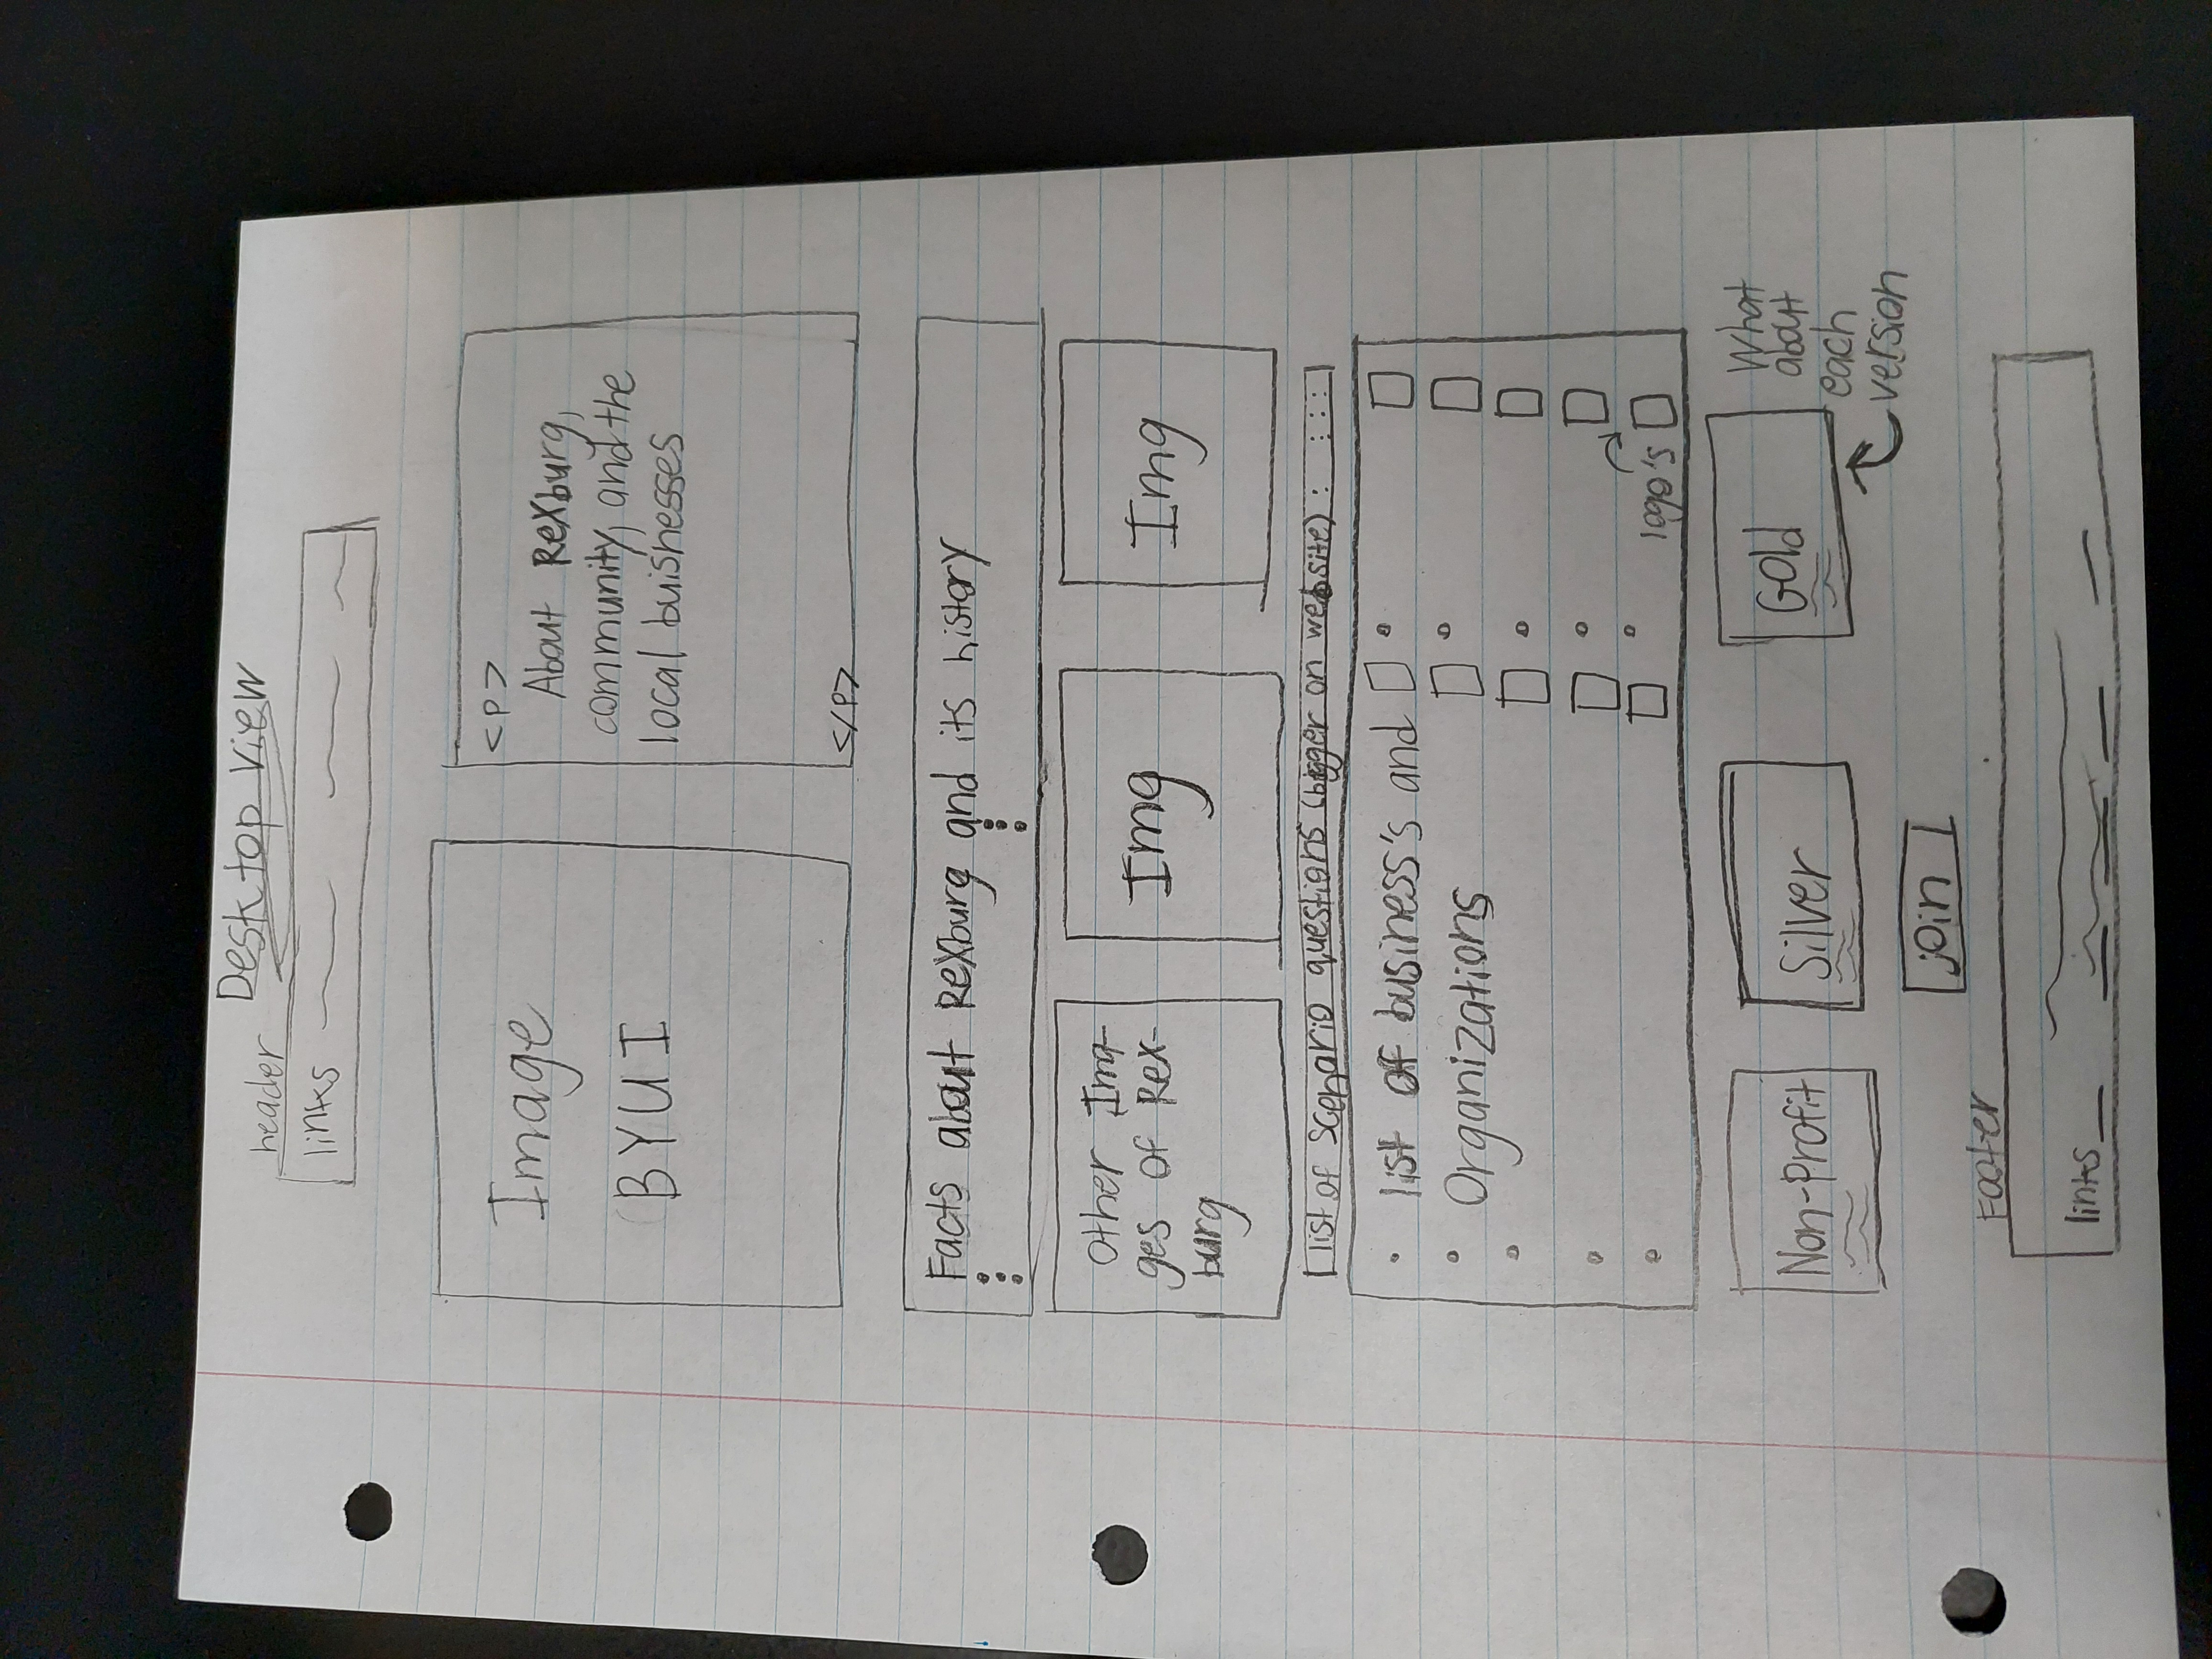 Desktop view
header
links
Image
BYUI
<p>
About Rexburg,
community, and the
local buisnesses
</p>
Facts about Rexburg and its history
other Ima-
ges of Rex-
burg
Img
Img
list of scenario questions (bigger on website) :
list of business's and
Organizations
logo's
Non-Profit
Silver
Gold
What
about
each
version
join
Footer
links